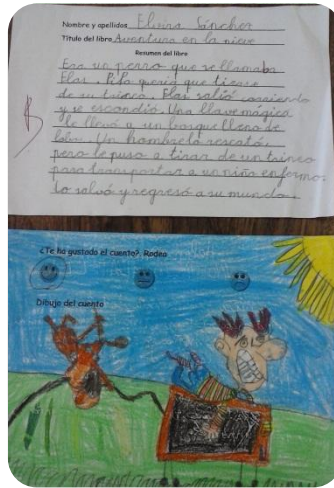 Nombre y apellidos Elvira Sánchez
Título del libro Aventura en la nieve
Resumen del libro
Era un perro que se llamaba
Elas. Pifa quería que tirase
de su trineo. Elas salió corriendo
y se escondió. Una llave mágica
le llevó a un bosque lleno de
lobos. Un hombre lo rescató,
pero le puso a tirar de un trineo
para transportar a un niño enfermo.
Lo salvó y regresó a su mundo.
¿Te ha gustado el cuento?. Rodea
Dibujo del cuento